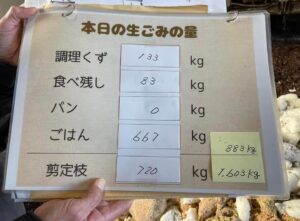 本日の生ごみの量
調理くず 133 kg
食べ残し 83 kg
パン 0 kg
ごはん 667 kg
883kg
剪定枝 720 kg
1,603kg